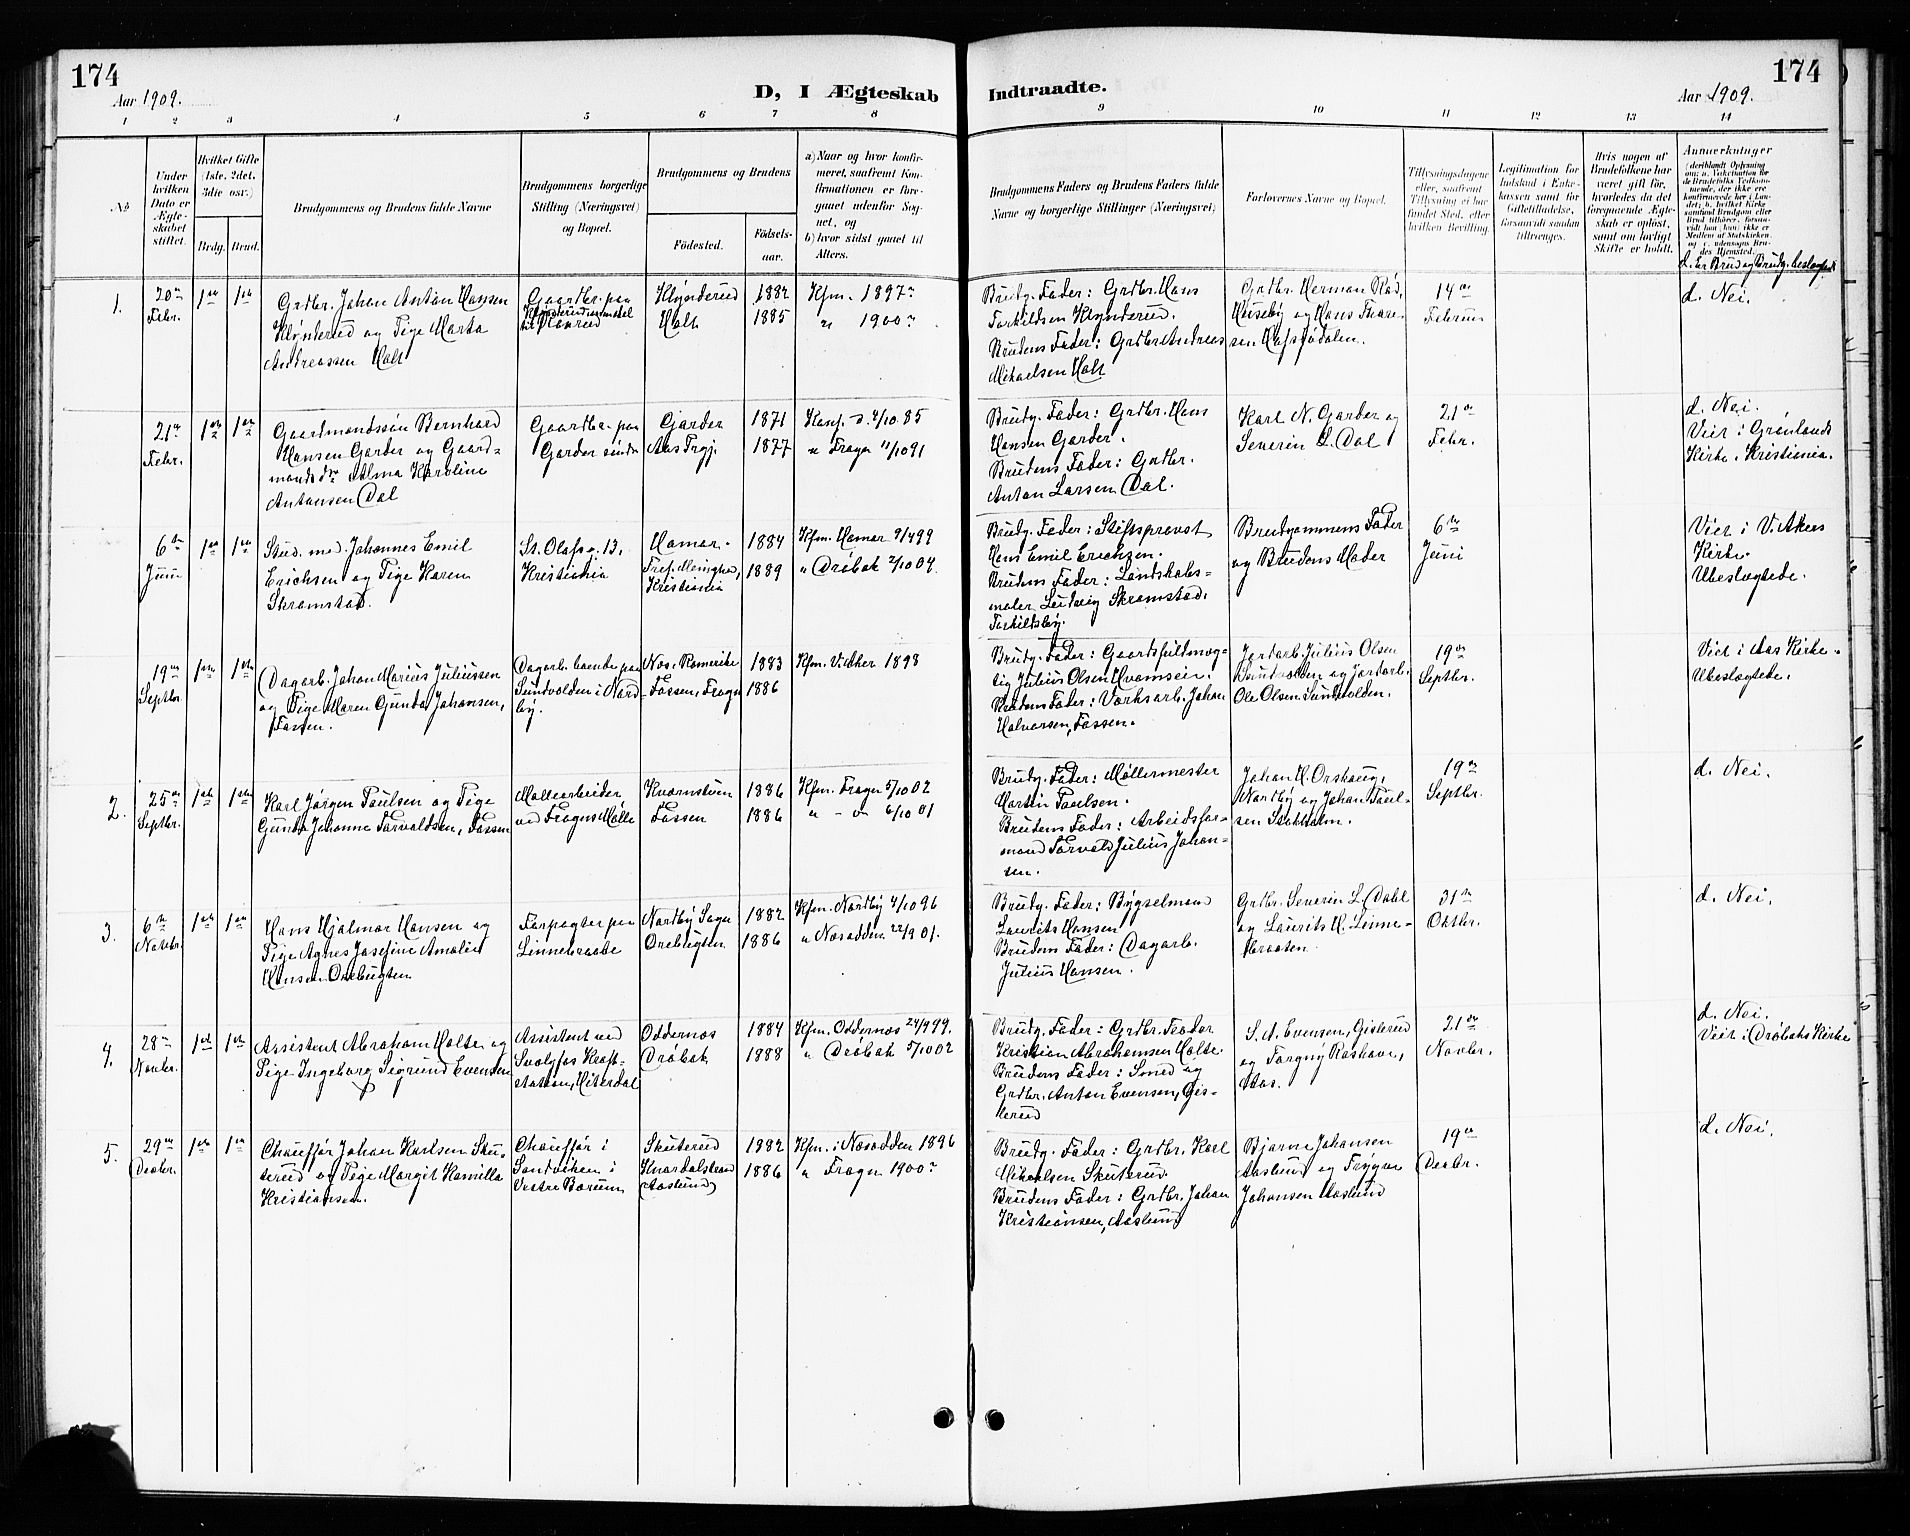 174
Aar 1909.
D, I Ægteskab
Indtraadte.
174
Aar 1909.
1 2 3 4 5 6 7 8
9 10 11 12 13 14
No
Under hvilken Dato er Ægteskabet stiftet.
Hvilket Gifte (1ste, 2det, 3die osv.)
Brdg. Brud.
Brudgommens og Brudens fulde Navne
Brudgommens borgerlige Stilling (Næringsvei) og Bopæl.
Brudgommens og Brudens
Fødested.
Fødselsaar.
a) Naar og hvor konfirmeret, saafremt Konfirmationen er foregaaet udenfor Sognet, og
b) hvor sidst gaaet til Alters.
Brudgommens Faders og Brudens Faders fulde Navne og borgerlige Stillinger (Næringsvei)
Forlovernes Navne og Bopæl.
Tillysningsdagene eller, saafremt Tillysning ei har fundet Sted, efter hvilken Bevilling.
Legitimation for Indskud i Enkekassen samt for Giftetilladelse, forsaavidt saadan tiltrænges.
Hvis nogen af Brudefolkene har været gift før, hvorledes da det foregaaende Ægteskab er opløst, samt om lovligt Skifte er holdt.
Anmærkninger
d. Er Brud og Brudg. beslægtede
1.
20de Febr.
1ste 1ste
Grdbr. Johan Anton Hansen
Klynderud og Pige Marta
Andreassen Holt
Gaardbr. paa
Klynderud
Holt
1882
1885
Kfm. 1897
" 1900
Brudg. Fader: Grdbr. Hans
Torkildsen Klynderud.
Brudens Fader: Grdbr. Andreas
Mikaelsen Holt
Grdbr. Herman Rød,
Huseby og Hans Thore-
sen
14de
Februar
d. Nei.
21de Febr.
1ste 1ste
Gaardmandssøn Bernhard
Hansen Garder og Gaard-
mandsdtr Alma Karoline
Antonsen Dal
Gaardbr. paa
Garder søndre
Garder
Aas Prgj.
1871
1877
Konf. d. 4/10 85
" Frogn 11/10 91
Brudg. Fader: Grdbr. Hans
Hansen Garder.
Brudens Fader: Grdbr.
Anton Larsen Dal.
Karl N. Garder og
Severin L. Dal
21de
Febr.
d. Nei.
Viet i Grønlands
Kirke, Kristiania.
6te Juni
1ste 1ste
Stud. med. Johannes Emil
Erichsen og Pige Karen
Skramstad.
St. Olafs g. 13,
Kristiania
Hamar.
Kristiania
1884
1889
Kfm. Hamar 9/4 99
" Drøbak 2/10 04.
Brudg. Fader: Stiftsprovst
Hans Emil Erichsen.
Brudens Fader: Landskabs-
maler Ludvig Skramstad,
Torkildsby.
Brudgommens Fader
og Brudens Moder
6te
Juni
Viet i V. Akers
Kirke.
Ubeslægtede.
19de Septbr.
1ste 1ste
Dagarb. Johan Marius Juliussen
og Pige Maren Gunda Johansen,
Fossen.
Dagarb. boende paa
Sundvolden i Nord-
by.
Nes. Romerike
Fossen, Frogn
1883
1886
Kfm. Vidher 1898
Brudg. Fader: Gaardsfuldmæg-
tig Julius Olsen Kvamseie.
Brudens Fader: Værksarb. Johan
Halvorsen, Fossen.
Jordarb. Julius Olsen
Sundvolden og Jordarb.
Ole Olsen Sundvolden.
19de
Septbr.
Viet i Aas Kirke.
Ubeslægtede.
2.
25de Septbr.
1ste 1ste
Karl Jørgen Paulsen og Pige
Gunda Johanne Torvaldsen, Fossen
Møllearbeider
ved Frogns Mølle
Kvarnstuen
Fossen
1886
1886
Kfm. Frogn 5/10 02
" - " 6/10 01
Brudg. Fader: Møllermester
Martin Paulsen.
Brudens Fader: Arbeidsfor-
mand Torvald Julius Johan-
sen.
Johan H. Orshaug,
Nordby og Johan Paul-
sen Stokholm.
19de
Septbr.
d. Nei.
3.
6te Novbr.
1ste 1ste
Hans Hjalmar Hansen og
Pige Agnes Josefine Amalie
Hansen Orebugten
Forpagter paa
Linnebraate
Nordby Sogn
Orebugten
1882
1886
Kfm. Nordby 4/10 96
" Nesodden 22/9 01.
Brudg. Fader: Bygselmand
Laurits Hansen
Brudens Fader: Dagarb.
Julius Hansen.
Grdbr. Severin L. Dahl
og Laurits H. Linne-
braaten.
31te
Oktbr.
d. Nei.
4.
28de Novbr.
1ste 1ste
Assistent Abraham Holte og
Pige Ingeborg Sigrund Evensen
Assistent ved
Svælgfos Kraft-
station, Hiterdal
Oddernes
Drøbak
1884
1888
Kfm. Oddernes 24/9 99.
" Drøbak 5/10 02
Brudg. Fader: Grdbr. Teodor
Kristian Abrahamsen Holte.
Brudens Fader: Smed og
Grdbr. Anton Evensen, Gis-
lerud
S. A. Evensen, Gislerud
og Torgny Roshave,
Aas.
21de
Novbr.
d. Nei.
Viet i Drøbaks Kirke
5.
29de Decbr.
1ste 1ste
Chauffør Johan Karlsen Sku-
terud og Pige Margit Kamilla
Kristiansen.
Chauffør i
Sandviken i
Vestre Bærum
Skuterud
(Aaslund)
1882
1886
Kfm. i Nesodden 1896
" Frogn 1900
Brudg. Fader: Grdbr. Karl
Mikaelsen Skuterud.
Brudens Fader: Grdbr. Johan
Kristiansen, Aaslund
Bjarne Johansen
Aaslund og Trygve
Johansen Aaslund
19de
Decbr.
d. Nei.